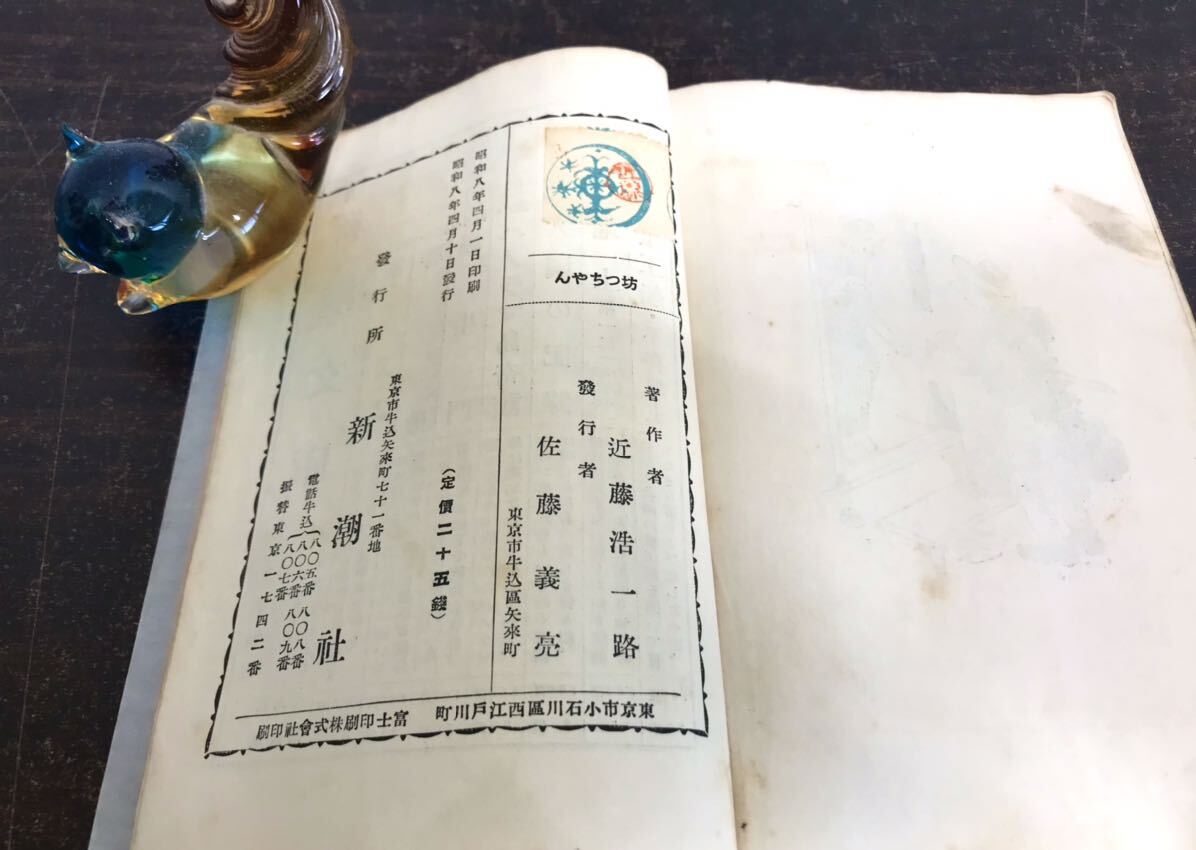 坊つちやん
著作者
近藤浩一路
發行者
佐藤義亮
東京市牛込區矢來町
昭和八年四月一日印刷
昭和八年四月十日發行
(定價二十五錢)
發行所
東京市牛込矢來町七十一番地
新潮社
電話牛込
八〇五番
八〇六番
八〇七番
八〇八番
八〇九番
振替東京一七四二番
東京市小石川區西江戶川町 富士印刷株式會社印刷